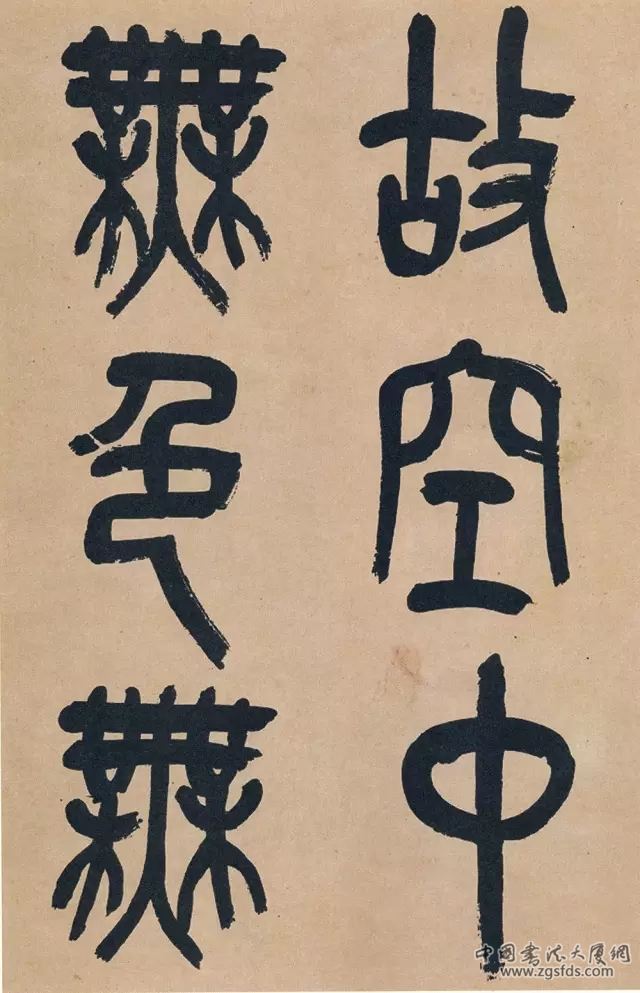 故空中
無色無
中国書法大厦網
www.zgsfds.com